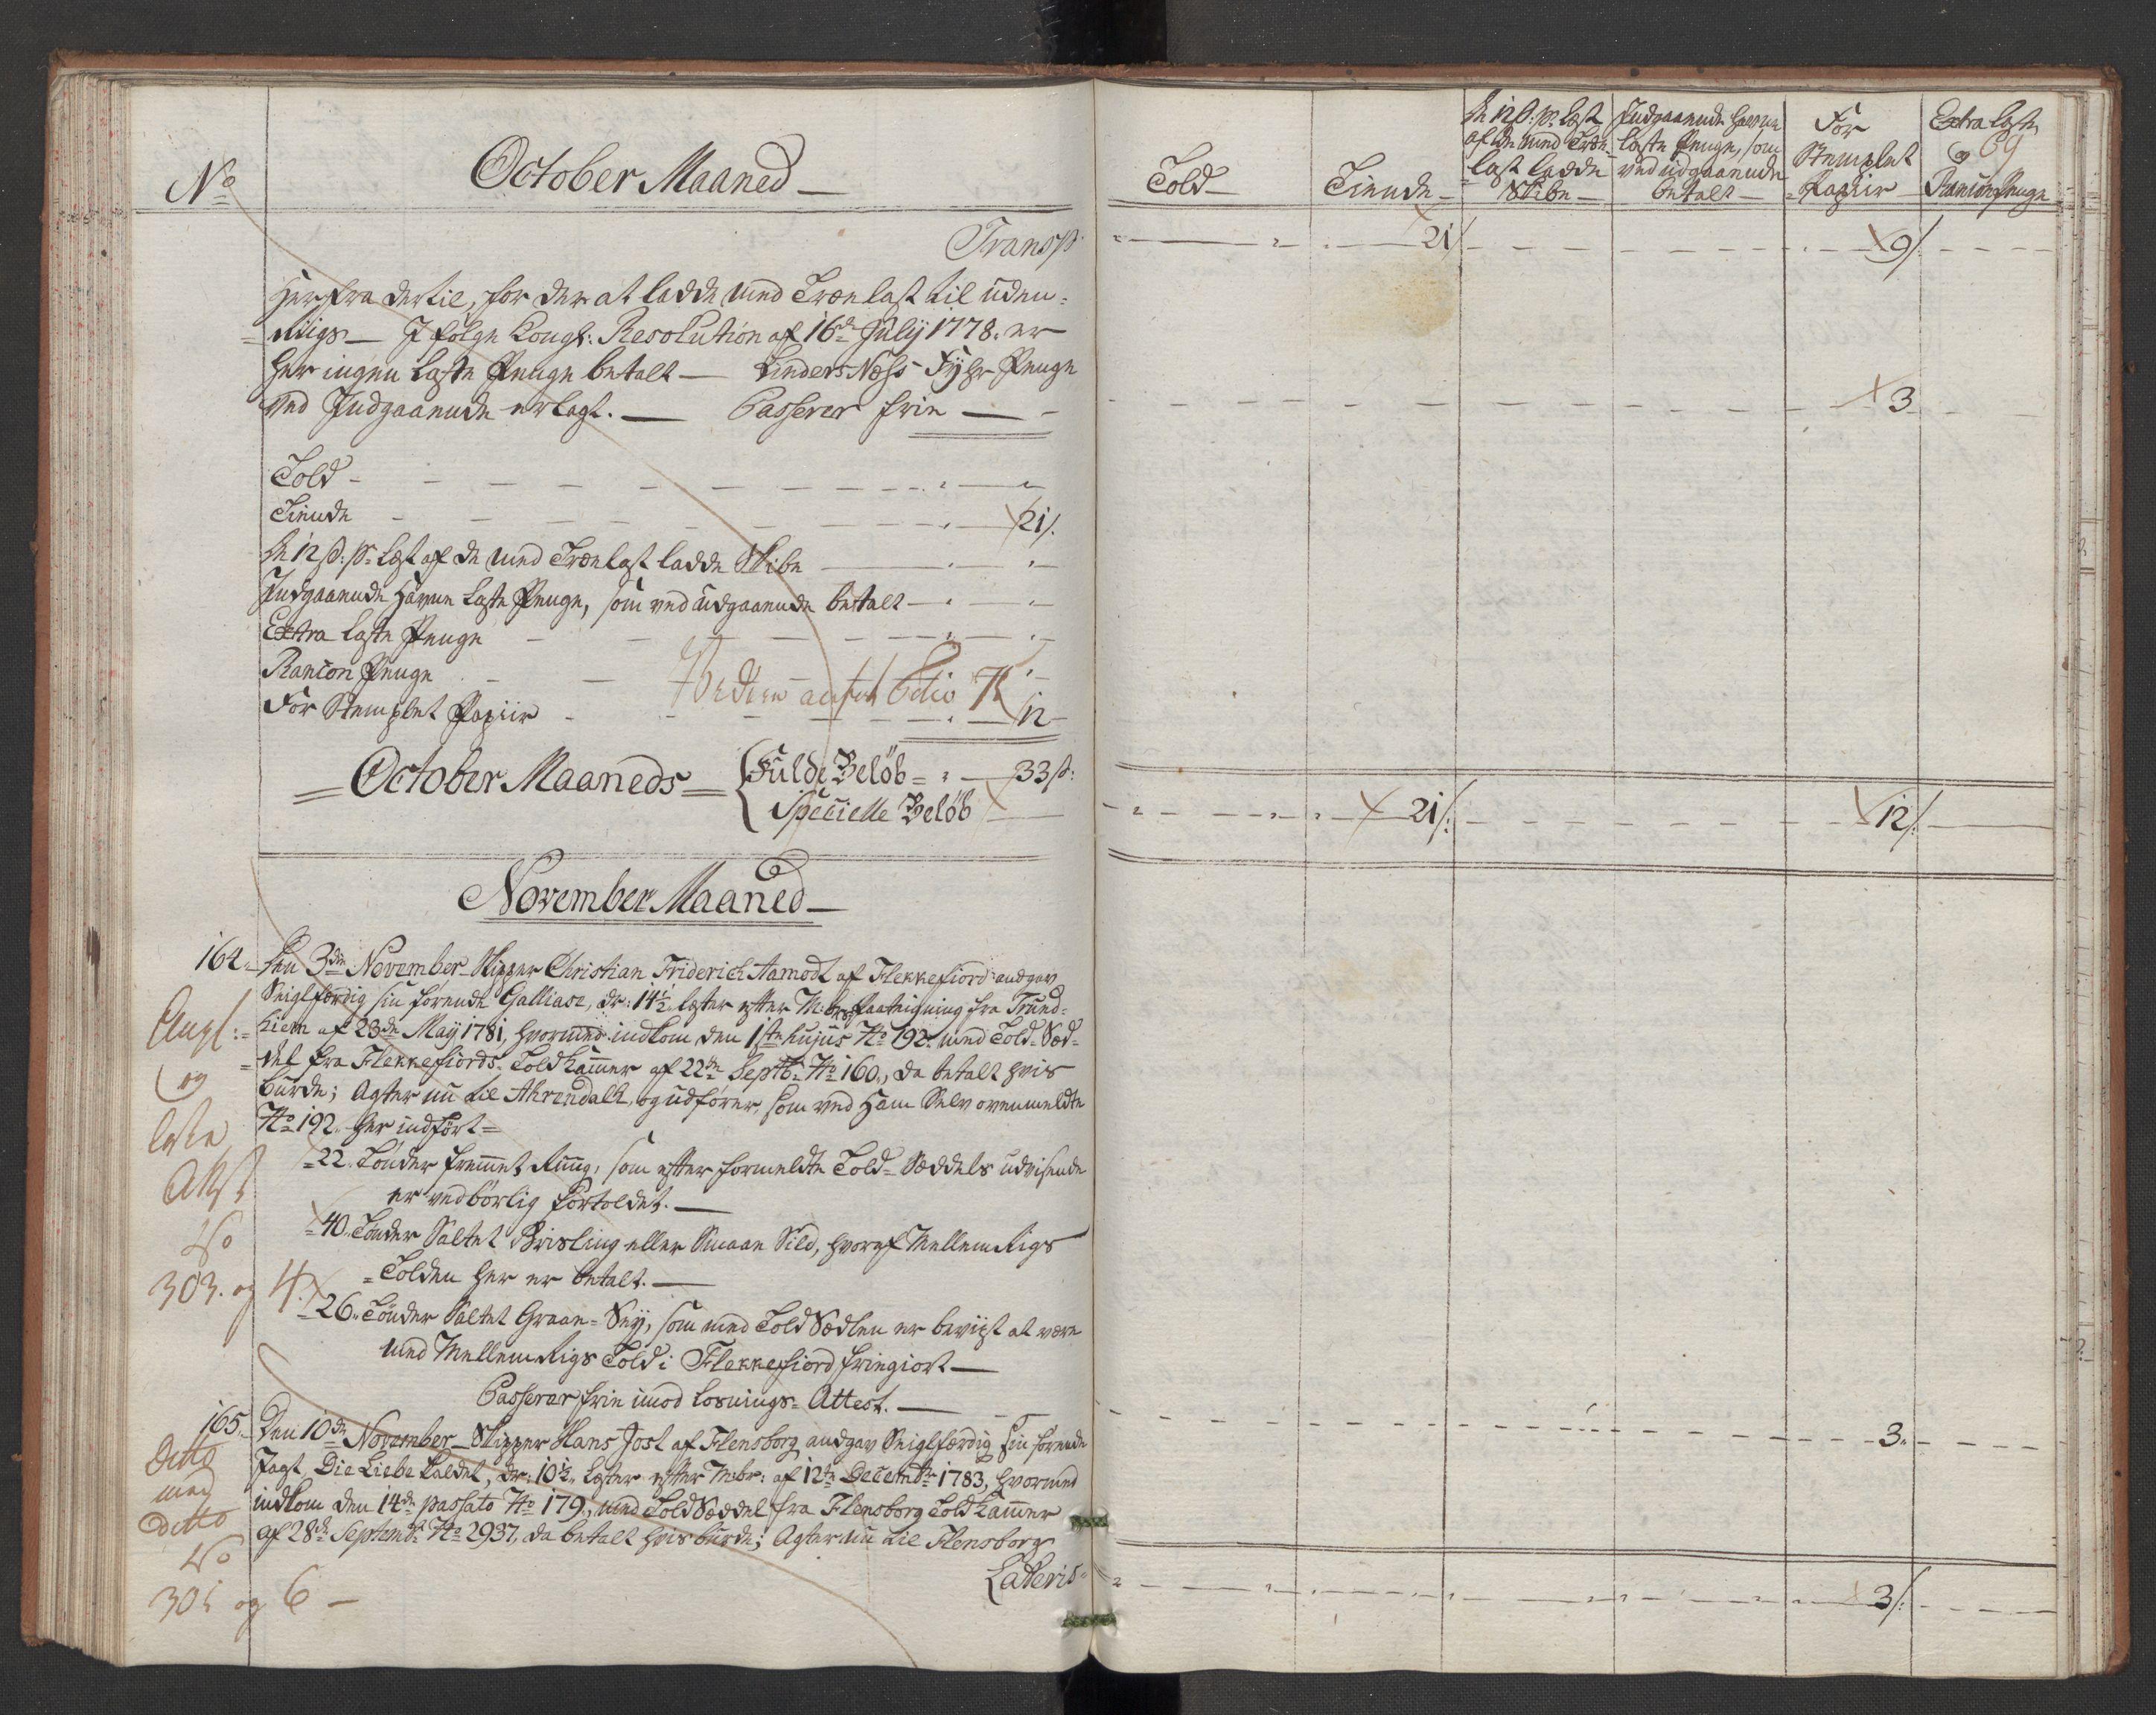 No
October Maaned
Transp
herfra dertil, for der at ladde med Trælast til uden-
riigs — I følge Kongl: Resolution af 16de July 1778. er
her ingen Laste Penge betalt — Linders Næss Fyhr Penge
ved Indgaaende erlagt. — Passerer frie —
Told - - -
Tiende - - - 21/.
De 12 s: pr Læst af de med Trælast ladde Skibe —
Indgaaende Havne Laste Penge, som ved udgaaende betalt —
Extra Laste Penge
Rancon Penge
For Stemplet Papiir - - - 12
October Maaneds { Fulde Beløb = " — 33 s:
Specielle Beløb
November Maaned
164. Den 3die November Skipper Christian Friderich Aamodt af Flekkefiord angav
Seiglfærdig sin førende Galliace, dr: 14½ Læster efter M:brs Paategning fra Trund-
hiem af 23de May 1781, hvormed indkom den 1ste hujus No 192. med Told-Sæd-
del fra Flekkefiords Toldkammer af 22de Septb: No 160., da betalt hvis
burde; Agter nu til Ahrendahl, og udfører, som ved Ham Selv ovenmeldte
No 192. her indført =
22. Tønder fremmet Rug, som efter formeldte Told-Sæddels udvisende
er vedbørlig fortoldet. —
40. Tønder Saltet Brisling eller Smaae Sild, hvoraf Mellem Rigs
Tolden her er betalt. —
26. Tønder Saltet Graae-Sey, som med Told Sædlen er beviist at være
med Mellem Rigs Told i Flekkefiord friegiort —
Passerer frie imod Losnings-Attest. —
og
laste
No
303. og 4.
165. Den 10de November Skipper Hans Jost af Flensborg angav Seiglfærdig sin førende
Jagt, Die Liebe kaldet, dr: 10½ Læster efter M:br: af 12te Decembr 1783, hvormed
indkom den 14de passato No 179., med Told Sæddel fra Flensborg Toldkammer
af 28de Septembr No 2937, da betalt hvis burde; Agter nu til Flensborg
Lateris
Ditto
med
Ditto
No
305 og 6 —
Told
Tiende
De 12 s: pr Læst
af de med Træ-
last ladde
Skibe
Indgaaende Havne
Laste Penge, som
ved udgaaende
betalt
For
Stemplet
Papiir
Extra Laste
og
Rancon Penge
69
21/ 9/
3
21/: 12/:
3.
3/: